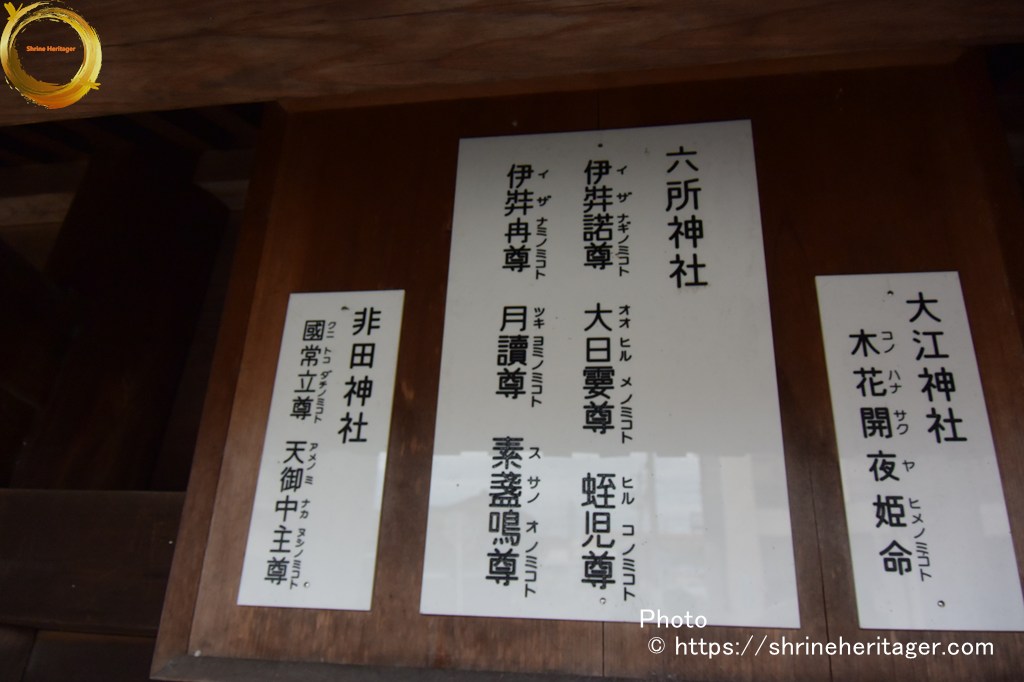 Shrine Heritager
大江神社
木花開夜姫命
コノ ハナ サク ヤ ヒメノミコト
六所神社
伊弉諾尊 大日孁尊 蛭児尊
イ ザ ナギノミコト オオ ヒル メ ノミコト ヒル コ ノミコト
伊弉冉尊 月讀尊 素盞鳴尊
イ ザ ナミノミコト ツキ ヨミノミコト ス サノ オ ノミコト
非田神社
國常立尊 天御中主尊
クニ トコ ダチノミコト アメノ ミ ナカ ヌシノミコト
Photo
© https://shrineheritager.com/